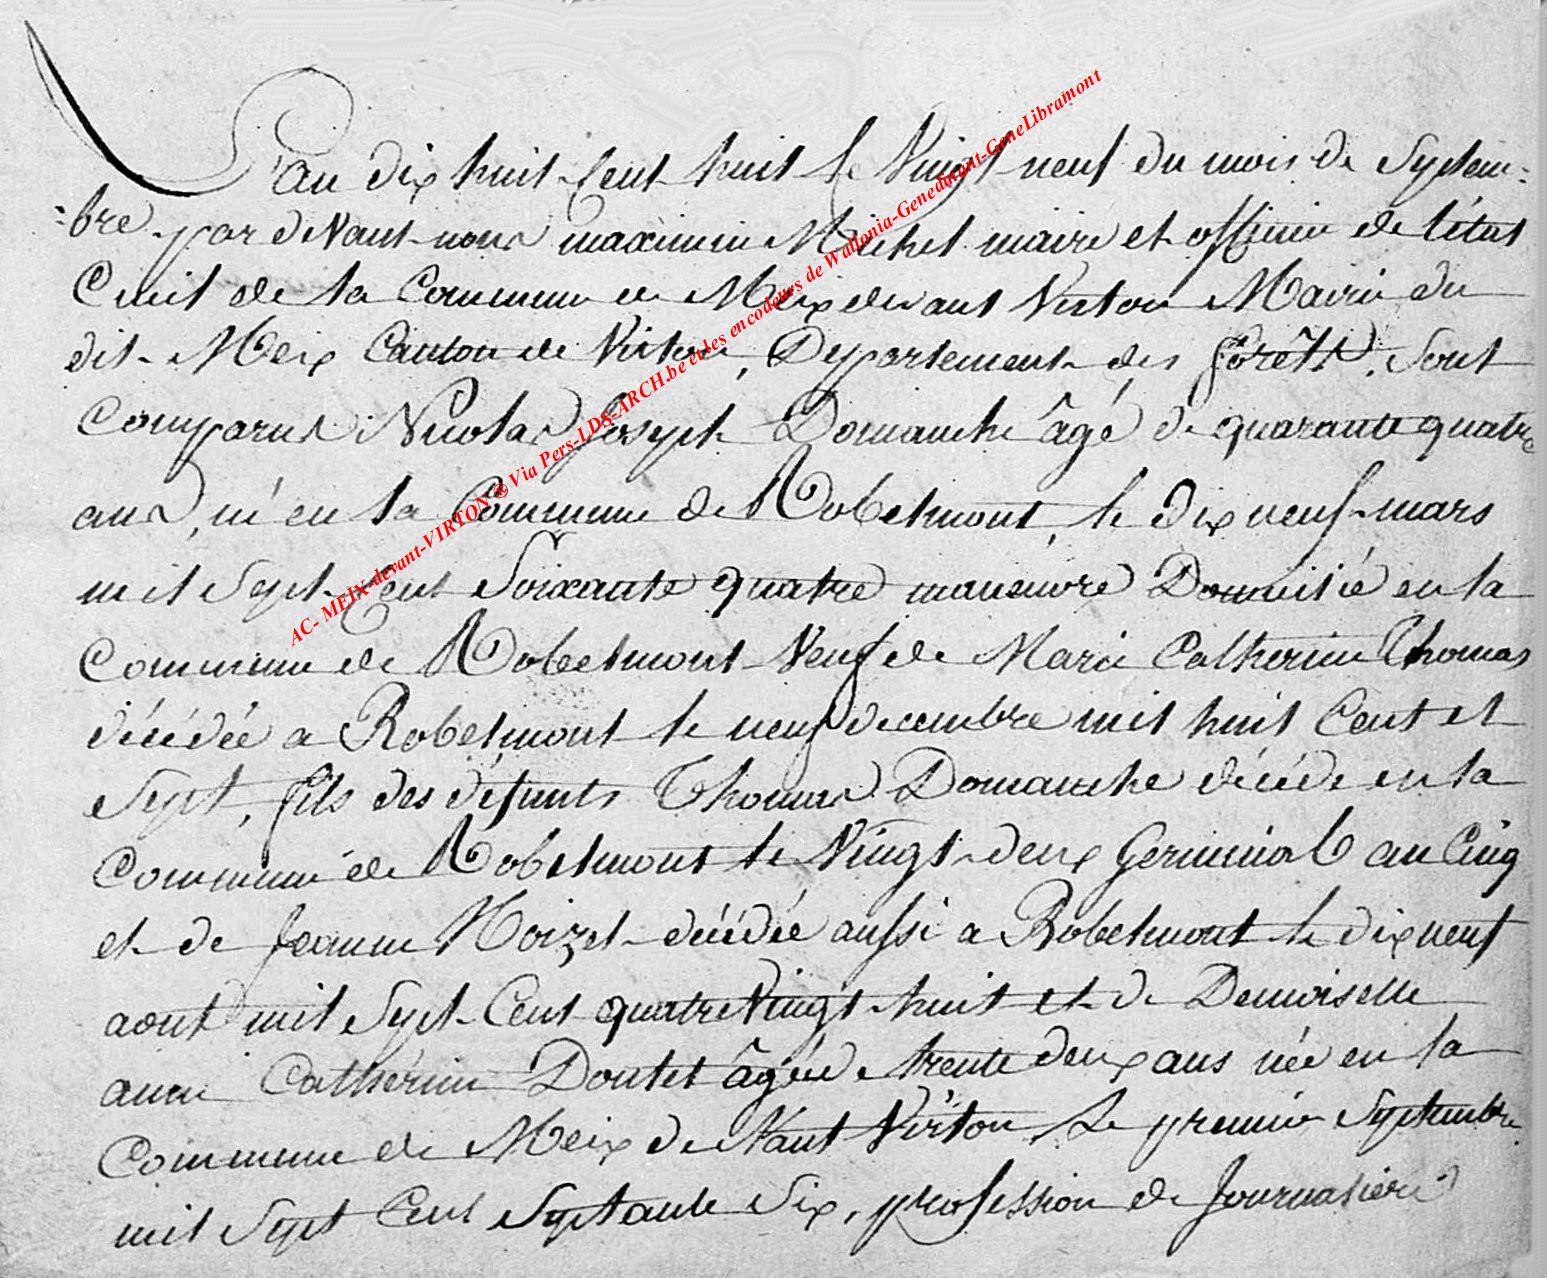 L'an dix huit Cent huit le Vingt neuf du mois de Septem-
-bre par deVant nous maximin Michel maire et officier de l'état
Civil de la Commune de Meix devant Virton Mairie du
dit Meix Canton de Virton, Département des forêts, Sont
Comparus Nicolas Joseph Domanche âgé de quarante quatre
ans, né en la Commune de Robelmont, le dix neuf mars
mil Sept Cent Soixante quatre manœuvre Domicilié en la
Commune de Robelmont Veuf de Marie Catherine Thomas
décédée a Robelmont le neuf decembre mil huit Cent et
Sept, fils des défunts Thomas Domanche décédé en la
Commune de Robelmont le Vingt deux Germinal an Cinq
et de Jeanne Noizet décédée aussi a Robelmont le dix neuf
aout mil Sept Cent quatre Vingt huit et de Demoiselle
anne Catherine Dontet âgée de trente deux ans née en la
Commune de Meix deVant Virton Le premier Septembre
mil Sept Cent Septante Six, profession de Journaliere
AC- MEIX-devant-VIRTON ® Via Pers-LDS-ARCH.be et les encodeurs de Wallonia-Genedinant-GeneLibramont